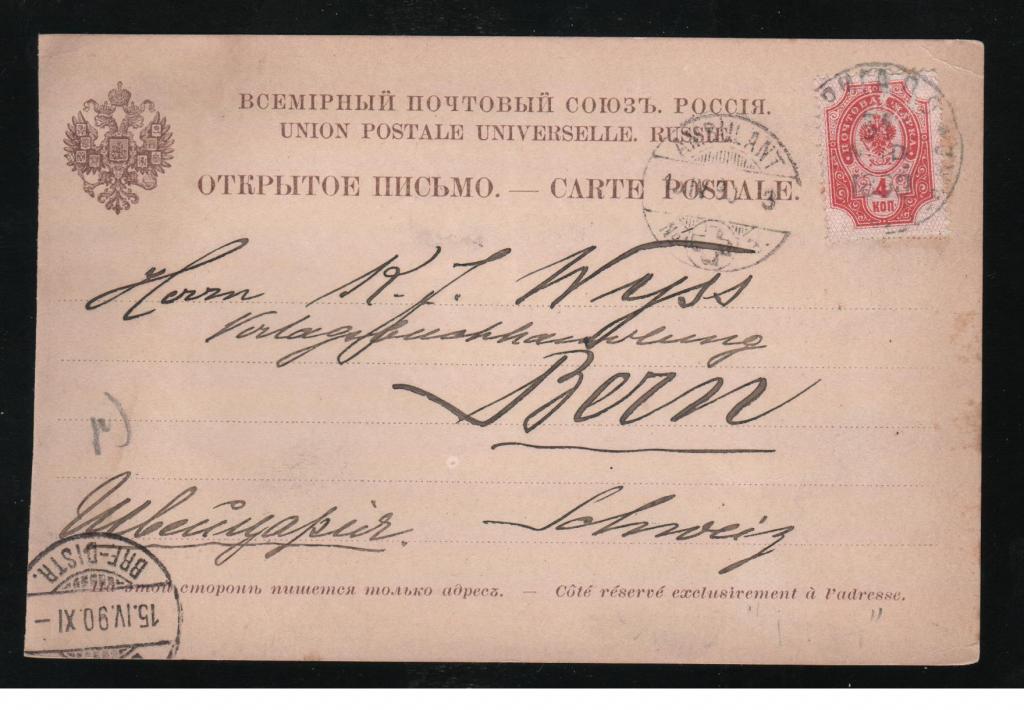 ВСЕМІРНЫЙ ПОЧТОВЫЙ СОЮЗЪ. РОССІЯ.
UNION POSTALE UNIVERSELLE. RUSSIE.
ОТКРЫТОЕ ПИСЬМО. — CARTE POSTALE.
ПОЧТОВАЯ МАРКА
4
КОП
AMBULANT
Herrn K. J. Wyss
Verlagsbuchhandlung
Bern
Швейцарія. Schweiz
BRF-DISTR.
15.IV.90.XI–
На этой сторонѣ пишется только адресъ. — Côté réservé exclusivement à l'adresse.